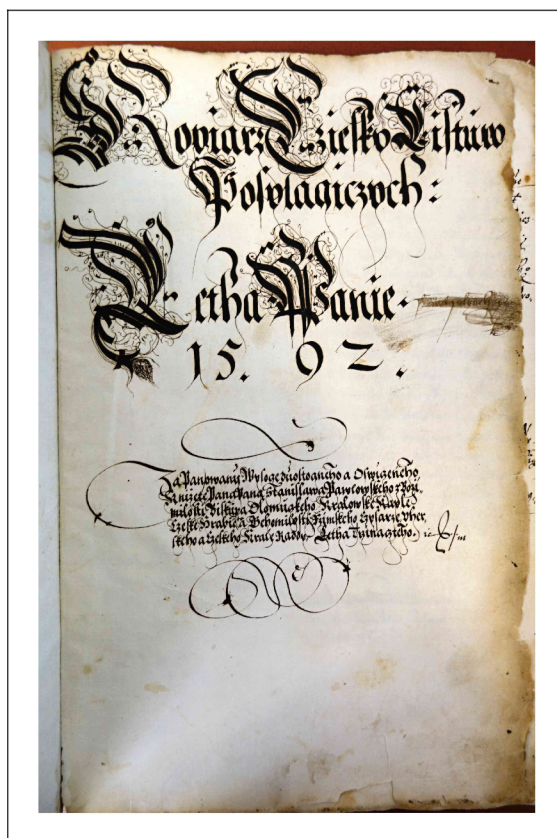 Kopiarz Cziesko Listuw
Posylagiczych:
Letha Panie.
15.92.
Za Panowany Wysoce duostogneho a Oswiceneho
Knizete Pana Pana Stanislawa Pawlowskeho z Boži
milosti Biskupa Olomuczkeho Kralowske Kaple
Czeske Hrabie a Geho milosti Rzimskeho Czysarze Uher
skeho a Czeskeho Krale Raddy. Letha